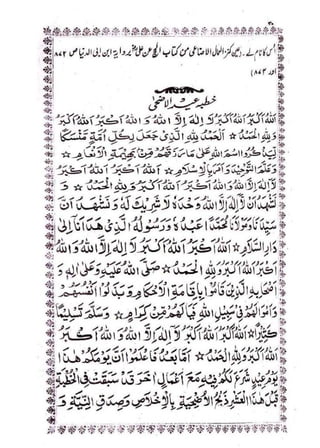 اُس کا نام لے۔ (عین کنز العمال الاضاحی من کتاب الحج عن علی بروایة ابن ابی الدنیا ص ۸۷۲
اور ۸۷۳)
خطبه عید الاضحیٰ
اَللهُ اَكْبَرُ اَللهُ اَكْبَرُ لَا إِلٰهَ إِلَّا اللهُ وَاللهُ اَكْبَرُ اَللهُ اَكْبَرُ
وَلِلّٰهِ الْحَمْدُ ☆ اَلْحَمْدُ لِلّٰهِ الَّذِىْ جَعَلَ لِكُلِّ اُمَّةٍ مَّنْسَكًا
لِيَذْكُرُوا اسْمَ اللهِ عَلٰى مَا رَزَقَهُمْ مِّنْ بَهِيْمَةِ الْاَنْعَامِ ☆
وَعَلَّمَ التَّوْحِيْدَ وَاَمَرَ بِالْاِسْلَامِ ☆ اَللهُ اَكْبَرُ اَللهُ اَكْبَرُ
لَا اِلٰهَ اِلَّا اللهُ وَاللهُ اَكْبَرُ اَللهُ اَكْبَرُ وَلِلّٰهِ الْحَمْدُ ☆ وَ
نَشْهَدُ اَنْ لَّا اِلٰهَ اِلَّا اللهُ وَحْدَهٗ لَا شَرِيْكَ لَهٗ وَنَشْهَدُ اَنَّ
سَيِّدَنَا وَمَوْلَانَا مُحَمَّدًا عَبْدُهٗ وَرَسُوْلُهُ الَّذِىْ هَدَانَا اِلٰى
دَارِ السَّلَامِ ☆ اَللهُ اَكْبَرُ اَللهُ اَكْبَرُ لَا اِلٰهَ اِلَّا اللهُ وَاللهُ
اَكْبَرُ اَللهُ اَكْبَرُ وَلِلّٰهِ الْحَمْدُ ☆ صَلَّى اللهُ عَلَيْهِ وَعَلٰى اٰلِهٖ وَ
اَصْحَابِهِ الَّذِيْنَ قَامُوْا بِاِقَامَةِ الْاَحْكَامِ وَبَذَلُوْا اَنْفُسَهُمْ
وَاَمْوَالَهُمْ فِىْ سَبِيْلِ اللهِ فَيَا لَهُمْ مِّنْ كِرَامٍ ☆ وَسَلَّمَ تَسْلِيْمًا
كَثِيْرًا ☆ اَللهُ اَكْبَرُ اَللهُ اَكْبَرُ لَا اِلٰهَ اِلَّا اللهُ وَاللهُ اَكْبَرُ
اَللهُ اَكْبَرُ وَلِلّٰهِ الْحَمْدُ ☆ اَمَّا بَعْدُ فَاعْلَمُوْا اَنَّ يَوْمَكُمْ هٰذَا
يَوْمُ عِيْدٍ شُرِعَ لَكُمْ فِيْهِ مَعَ اَعْمَالٍ اُخَرَ قَدْ سَبَقَتْ فِى الْخُطْبَةِ
قَبْلَ هٰذَا الْعَشْرِ ذَبْحُ الْاُضْحِيَةِ بِالْاِخْلَاصِ وَصِدْقِ النِّيَّةِ وَ